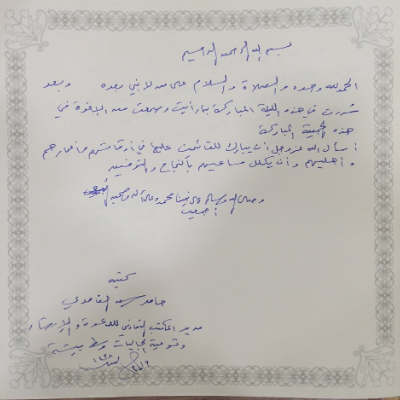 بسم الله الرحمن الرحيم
الحمد لله وحده والصلاة والسلام على من لا نبي بعده وبعد
سررت في هذه الليلة المباركة بما رأيت وسمعت من الإخوة في
هذه الجمعية المباركة
أسأل الله عز وجل أن يبارك للقائمين عليها في أوقاتهم وأعمارهم
وأهليهم وأن يكلل مساعيهم بالنجاح والتوفيق
وصلى الله وسلم على نبينا محمد وعلى آله وصحبه
أجمعين
كتبه
حامد سعد الغامدي
مدير المكتب التعاوني للدعوة والإرشاد
وتوعية الجاليات وسط بيشة